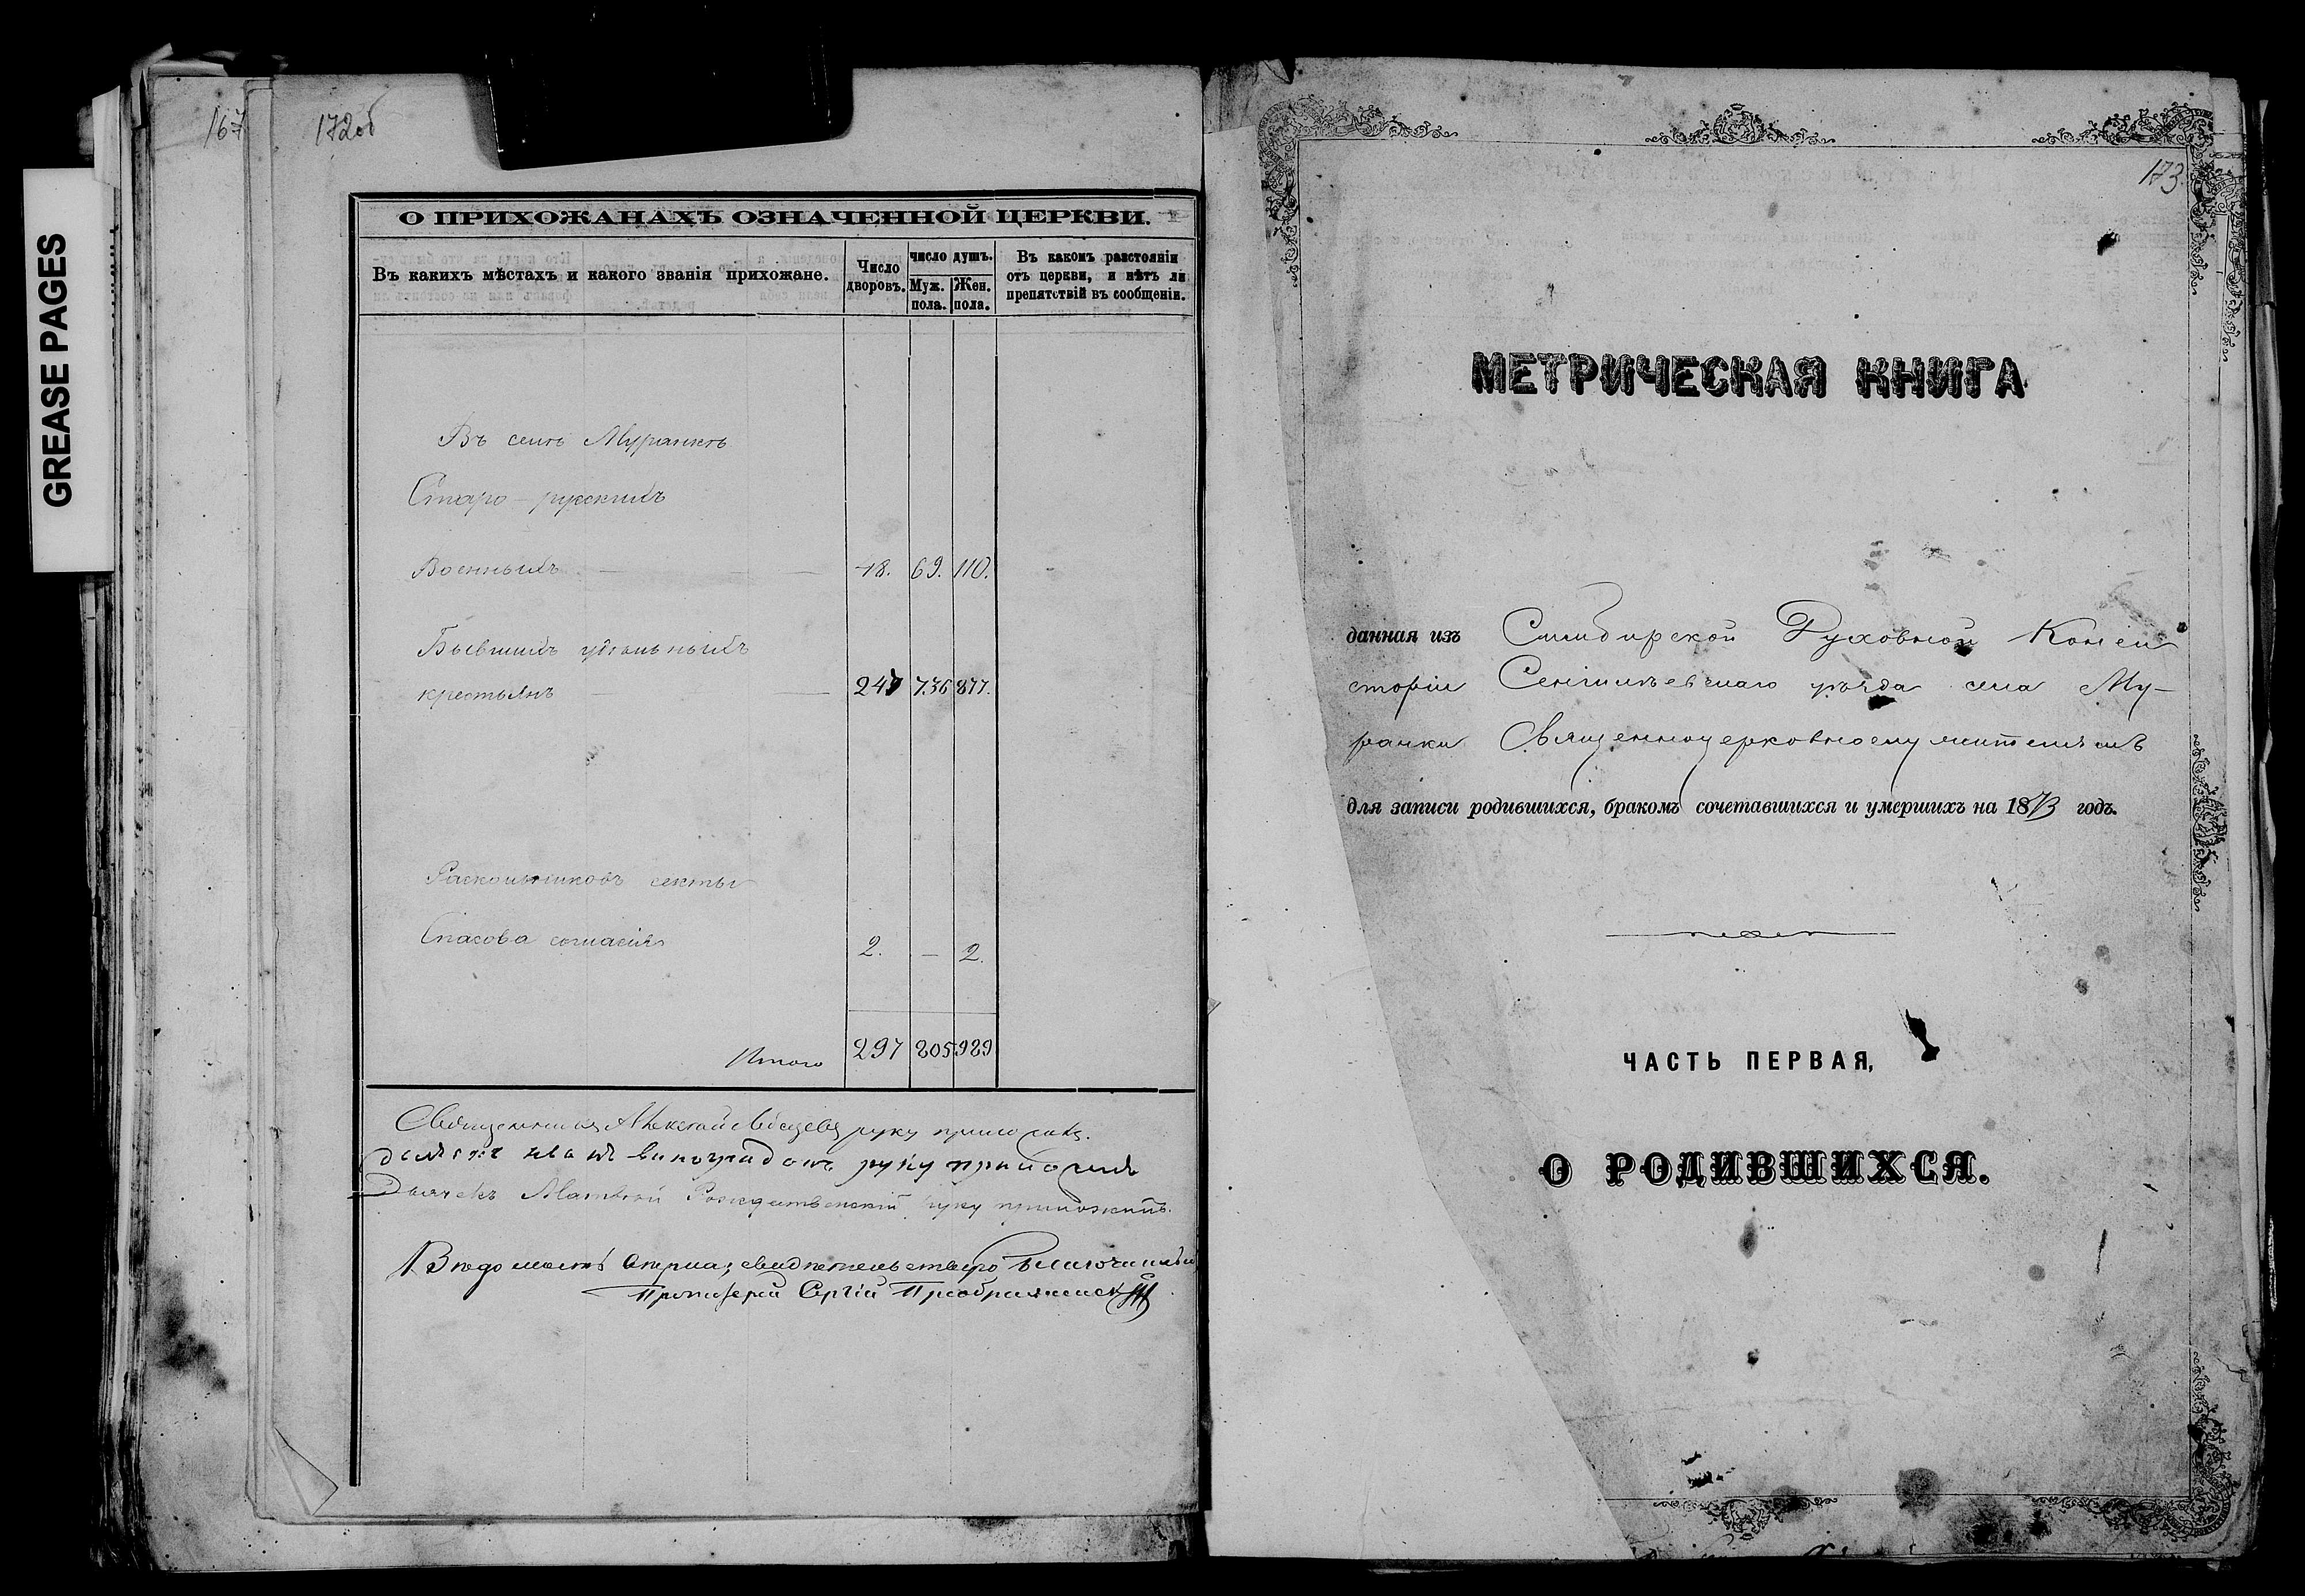 GREASE PAGES
167
172об
О ПРИХОЖАНАХЪ ОЗНАЧЕННОЙ ЦЕРКВИ.
Въ какихъ мѣстахъ и какого званія прихожане.
Число дворовъ.
число душъ.
Муж. пола.
Жен. пола.
Въ какомъ разстояніи отъ церкви, и нѣтъ ли препятствій въ сообщеніи.
Въ селѣ Муранкѣ
Старо-русскихъ
Военныхъ — — 18. 69. 110.
Бывшихъ удѣльныхъ
крестьянъ — — 247 736 877.
Раскольниковъ секты
Спасова согласія 2. — 2.
Итого 297 805 989
Священникъ Алексѣй Лебедевъ руку приложилъ.
Иванъ Виноградовъ руку приложилъ
Дьячекъ Матвей Рождественскій руку приложилъ.
Вѣдомость свидѣтельствовалъ Благочинный
Протоіерей Сергій Преображенскій
173.
МЕТРИЧЕСКАЯ КНИГА
данная изъ Симбирской Духовной Консис
торіи Сенгилеевскаго уѣзда села Му-
ранки Священноцерковнослужителямъ
для записи родившихся, бракомъ сочетавшихся и умершихъ на 1873 годъ.
ЧАСТЬ ПЕРВАЯ,
О РОДИВШИХСЯ.